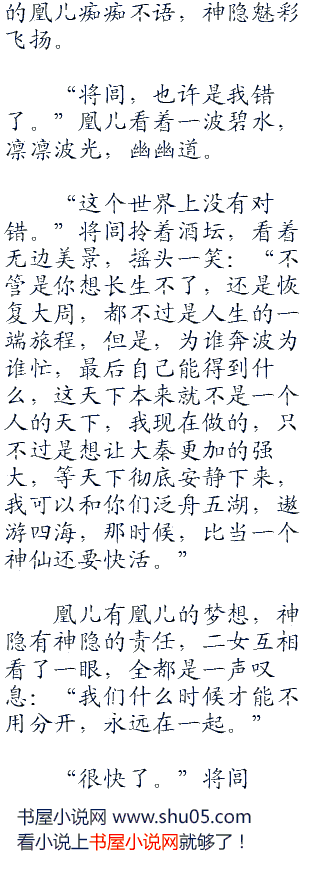 的凰儿痴痴不语，神隐魅彩
飞扬。
“将闾，也许是我错
了。”凰儿看着一波碧水，
凛凛波光，幽幽道。
“这个世界上没有对
错。”将闾拎着酒坛，看着
无边美景，摇头一笑：“不
管是你想长生不了，还是恢
复大周，都不过是人生的一
端旅程，但是，为谁奔波为
谁忙，最后自己能得到什
么，这天下本来就不是一个
人的天下，我现在做的，只
不过是想让大秦更加的强
大，等天下彻底安静下来，
我可以和你们泛舟五湖，遨
游四海，那时候，比当一个
神仙还要快活。”
凰儿有凰儿的梦想，神
隐有神隐的责任，二女互相
看了一眼，全都是一声叹
息：“我们什么时候才能不
用分开，永远在一起。”
“很快了。”将闾
书屋小说网 www.shu05.com
看小说上书屋小说网就够了！